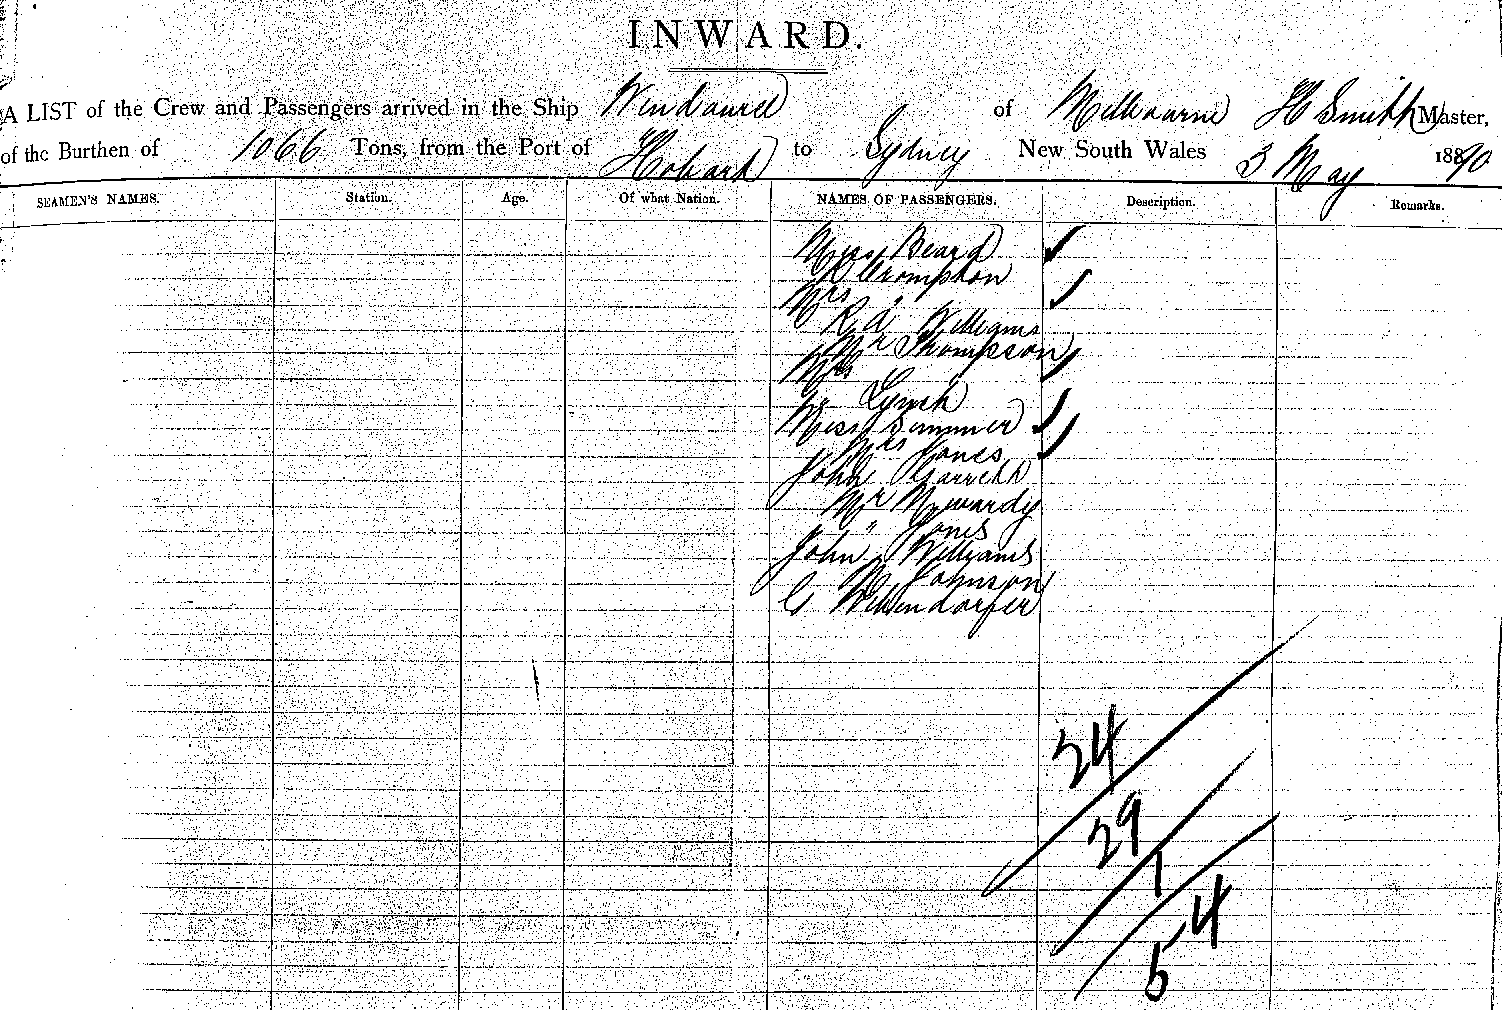 INWARD.
A LIST of the Crew and Passengers arrived in the Ship Wendouree of Melbourne H Smith Master,
of the Burthen of 1066 Tons, from the Port of Hobart to Sydney New South Wales 3 May 1890
SEAMEN'S NAMES. Station. Age. Of what Nation. NAMES OF PASSENGERS. Description. Remarks.
Miss Beard ✓
R Crompton
Mrs " ✓
R A Williams
Mr Thompson
Mrs " ✓
" Lynch
Miss Simmer ✓
Mrs Jones ✓
John Garrett
Mr
" Jones
John Williams
Johnson
C
24
29
1
54